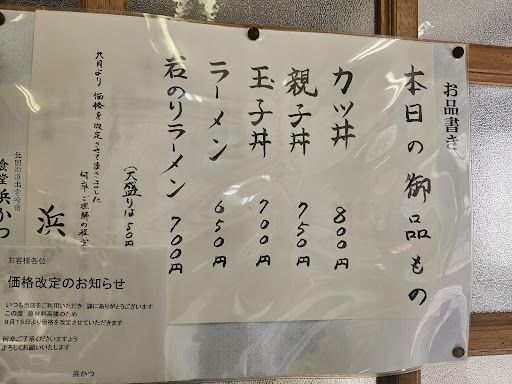 お品書き
本日の御品もの
カツ丼 800円
親子丼 750円
玉子丼 700円
ラーメン 650円
岩のりラーメン 700円
(大盛りは50円
九月より価格を改定させて頂きました
何卒ご理解の程
浜
食堂 浜かつ
お客様各位
価格改定のお知らせ
いつも当店をご利用いただき 誠にありがとうございます
この度 原材料高騰のため
9月15日より価格を改定させていただきます
何卒ご了承くださいますよう
よろしくお願いいたします
浜かつ